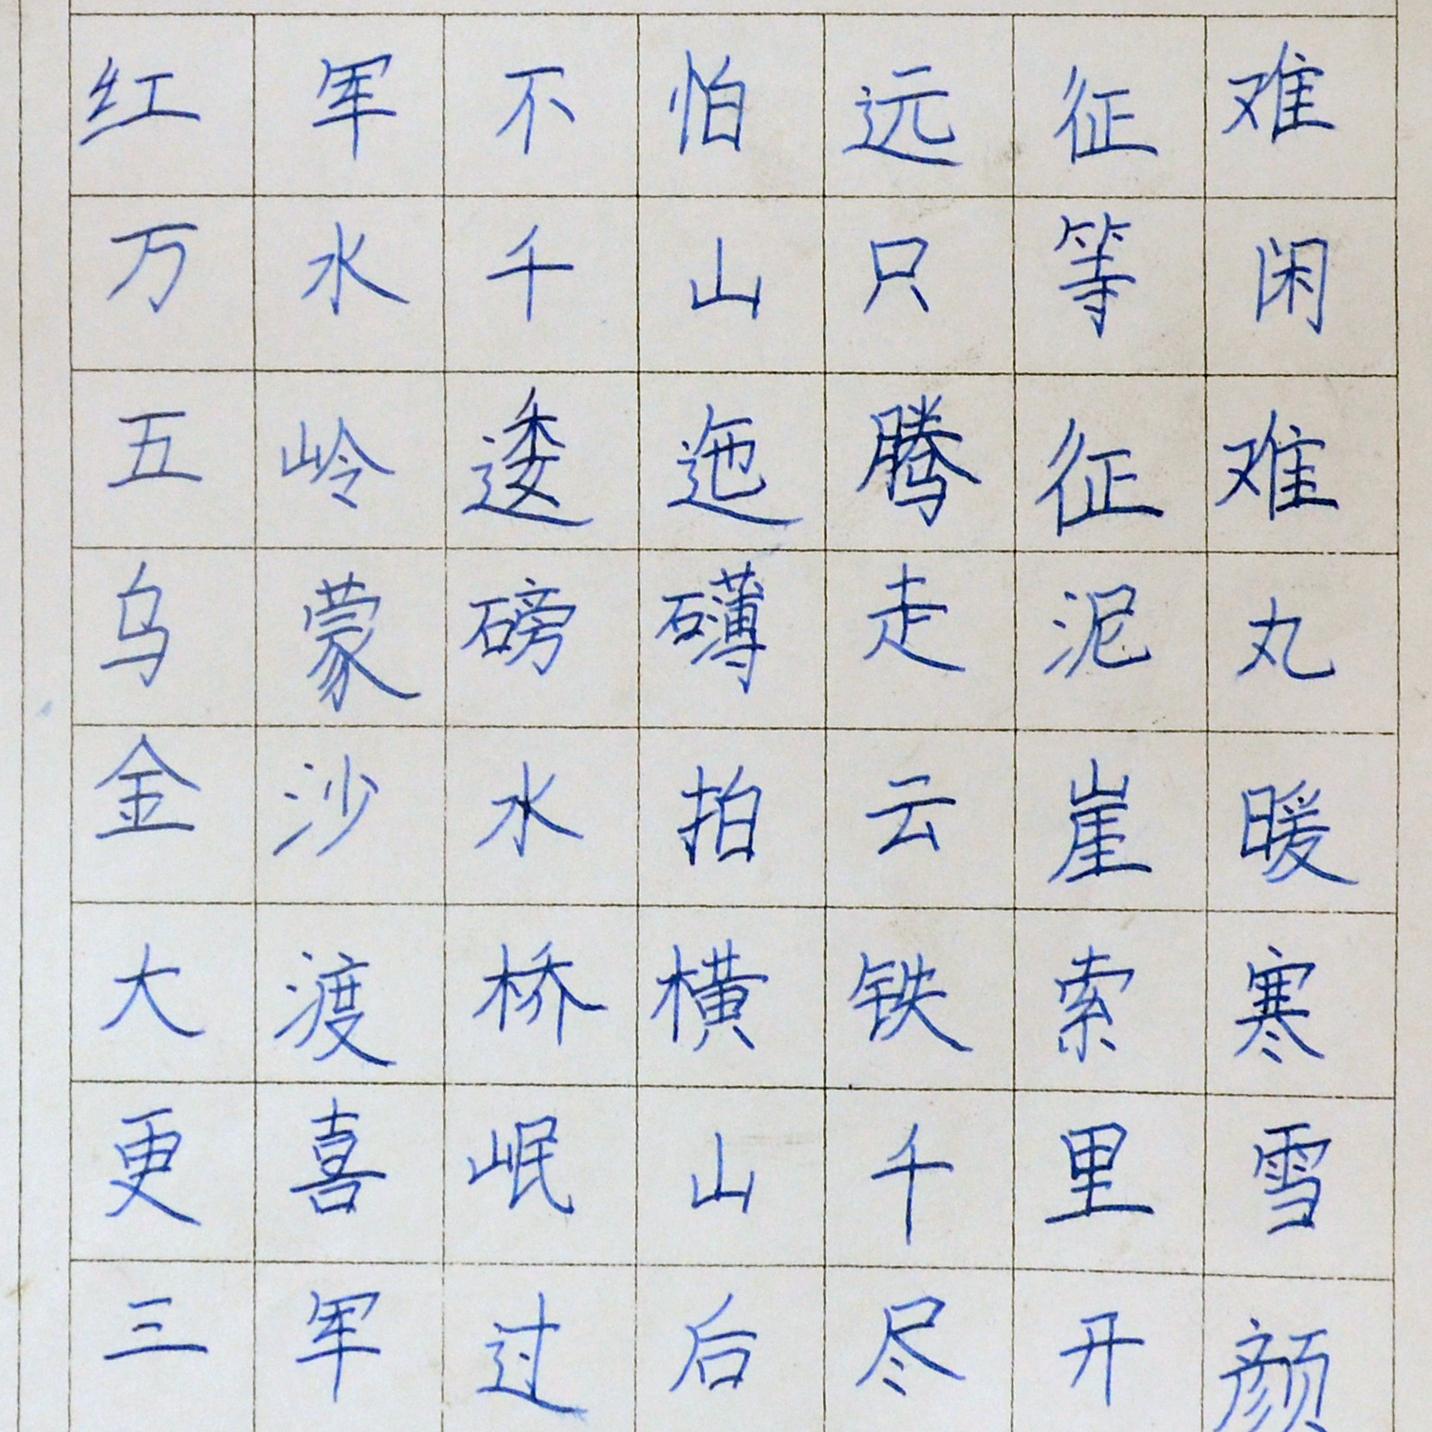 红军不怕远征难
万水千山只等闲
五岭逶迤腾征难
乌蒙磅礴走泥丸
金沙水拍云崖暖
大渡桥横铁索寒
更喜岷山千里雪
三军过后尽开颜